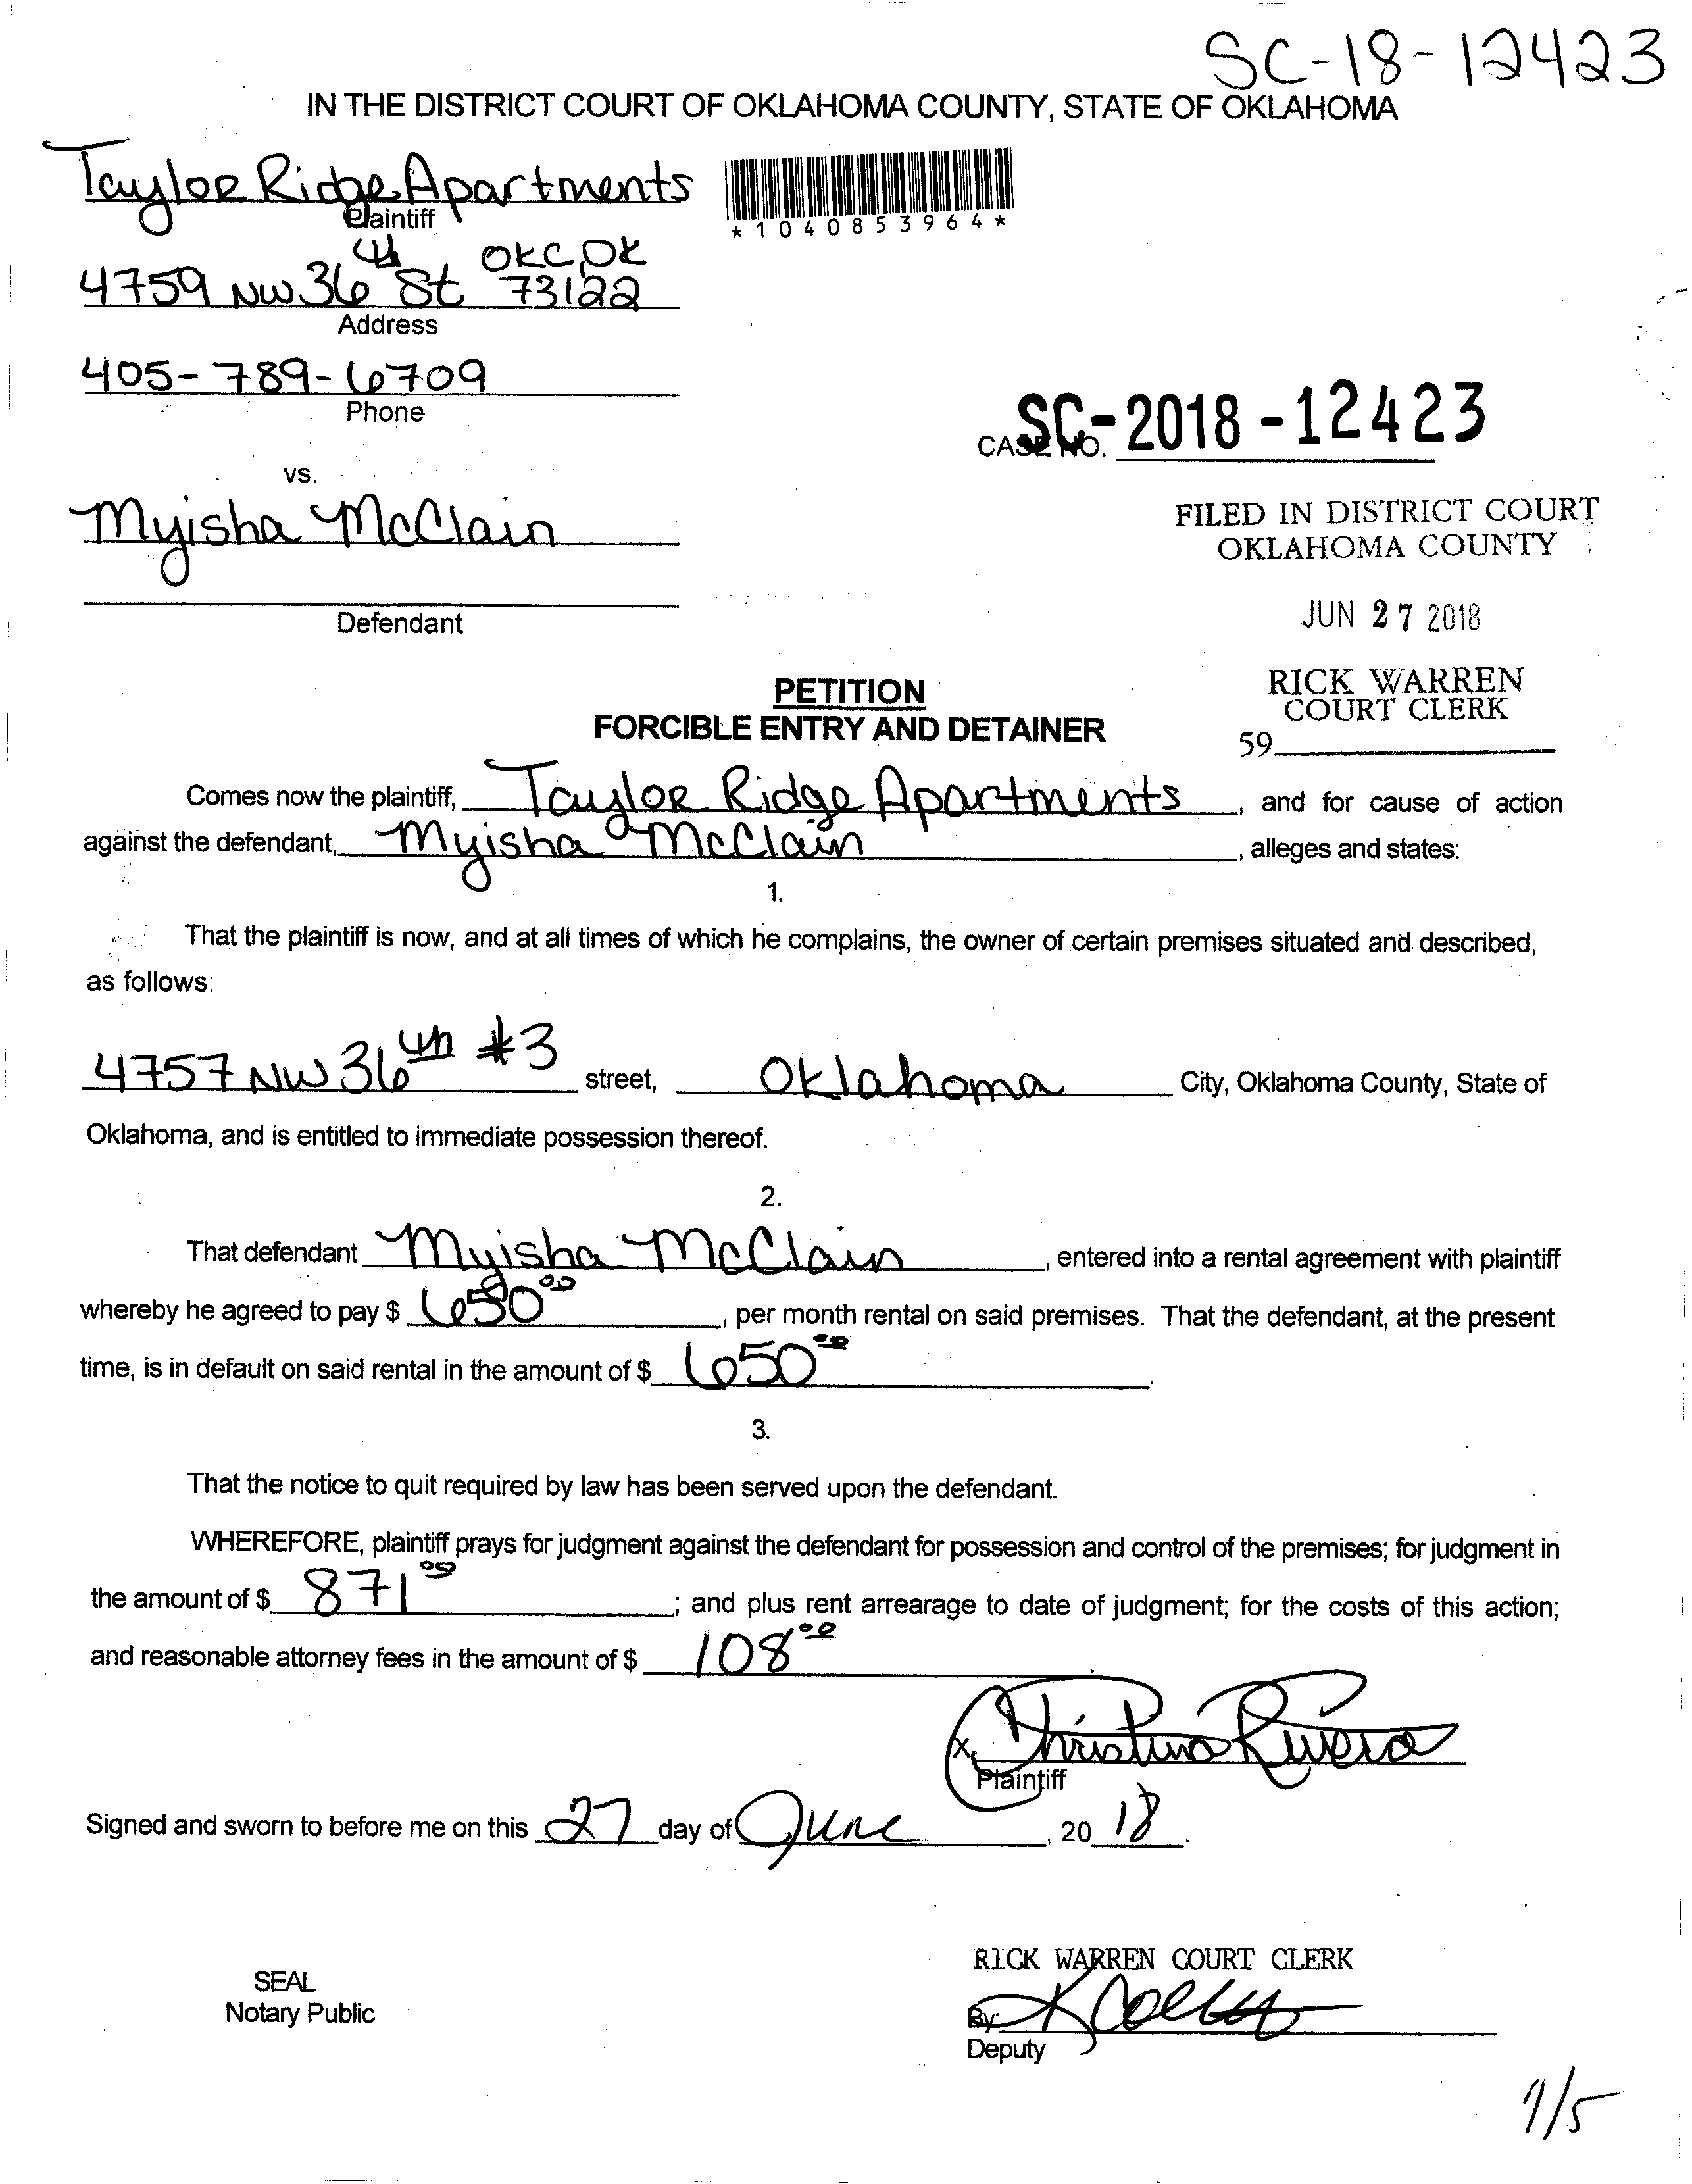 SC-18-12423
IN THE DISTRICT COURT OF OKLAHOMA COUNTY, STATE OF OKLAHOMA
Taylor Ridge Apartments
Plaintiff
*1040853964*
4759 NW 36th St OKC, OK 73122
Address
405-789-6709
Phone
CASE NO. SC-2018-12423
vs.
Myisha McClain
FILED IN DISTRICT COURT
OKLAHOMA COUNTY
Defendant
JUN 27 2018
RICK WARREN
COURT CLERK
59
PETITION
FORCIBLE ENTRY AND DETAINER
Comes now the plaintiff, Taylor Ridge Apartments, and for cause of action
against the defendant, Myisha McClain, alleges and states:
1.
That the plaintiff is now, and at all times of which he complains, the owner of certain premises situated and described,
as follows:
4757 NW 36th #3 street, Oklahoma City, Oklahoma County, State of
Oklahoma, and is entitled to immediate possession thereof.
2.
That defendant Myisha McClain, entered into a rental agreement with plaintiff
whereby he agreed to pay $ 650.00, per month rental on said premises. That the defendant, at the present
time, is in default on said rental in the amount of $ 650.00.
3.
That the notice to quit required by law has been served upon the defendant.
WHEREFORE, plaintiff prays for judgment against the defendant for possession and control of the premises; for judgment in
the amount of $ 871.00; and plus rent arrearage to date of judgment; for the costs of this action;
and reasonable attorney fees in the amount of $ 108.00.
x Christina Rivera
Plaintiff
Signed and sworn to before me on this 27 day of June, 2018.
RICK WARREN COURT CLERK
SEAL
Notary Public
By
Deputy
7/5